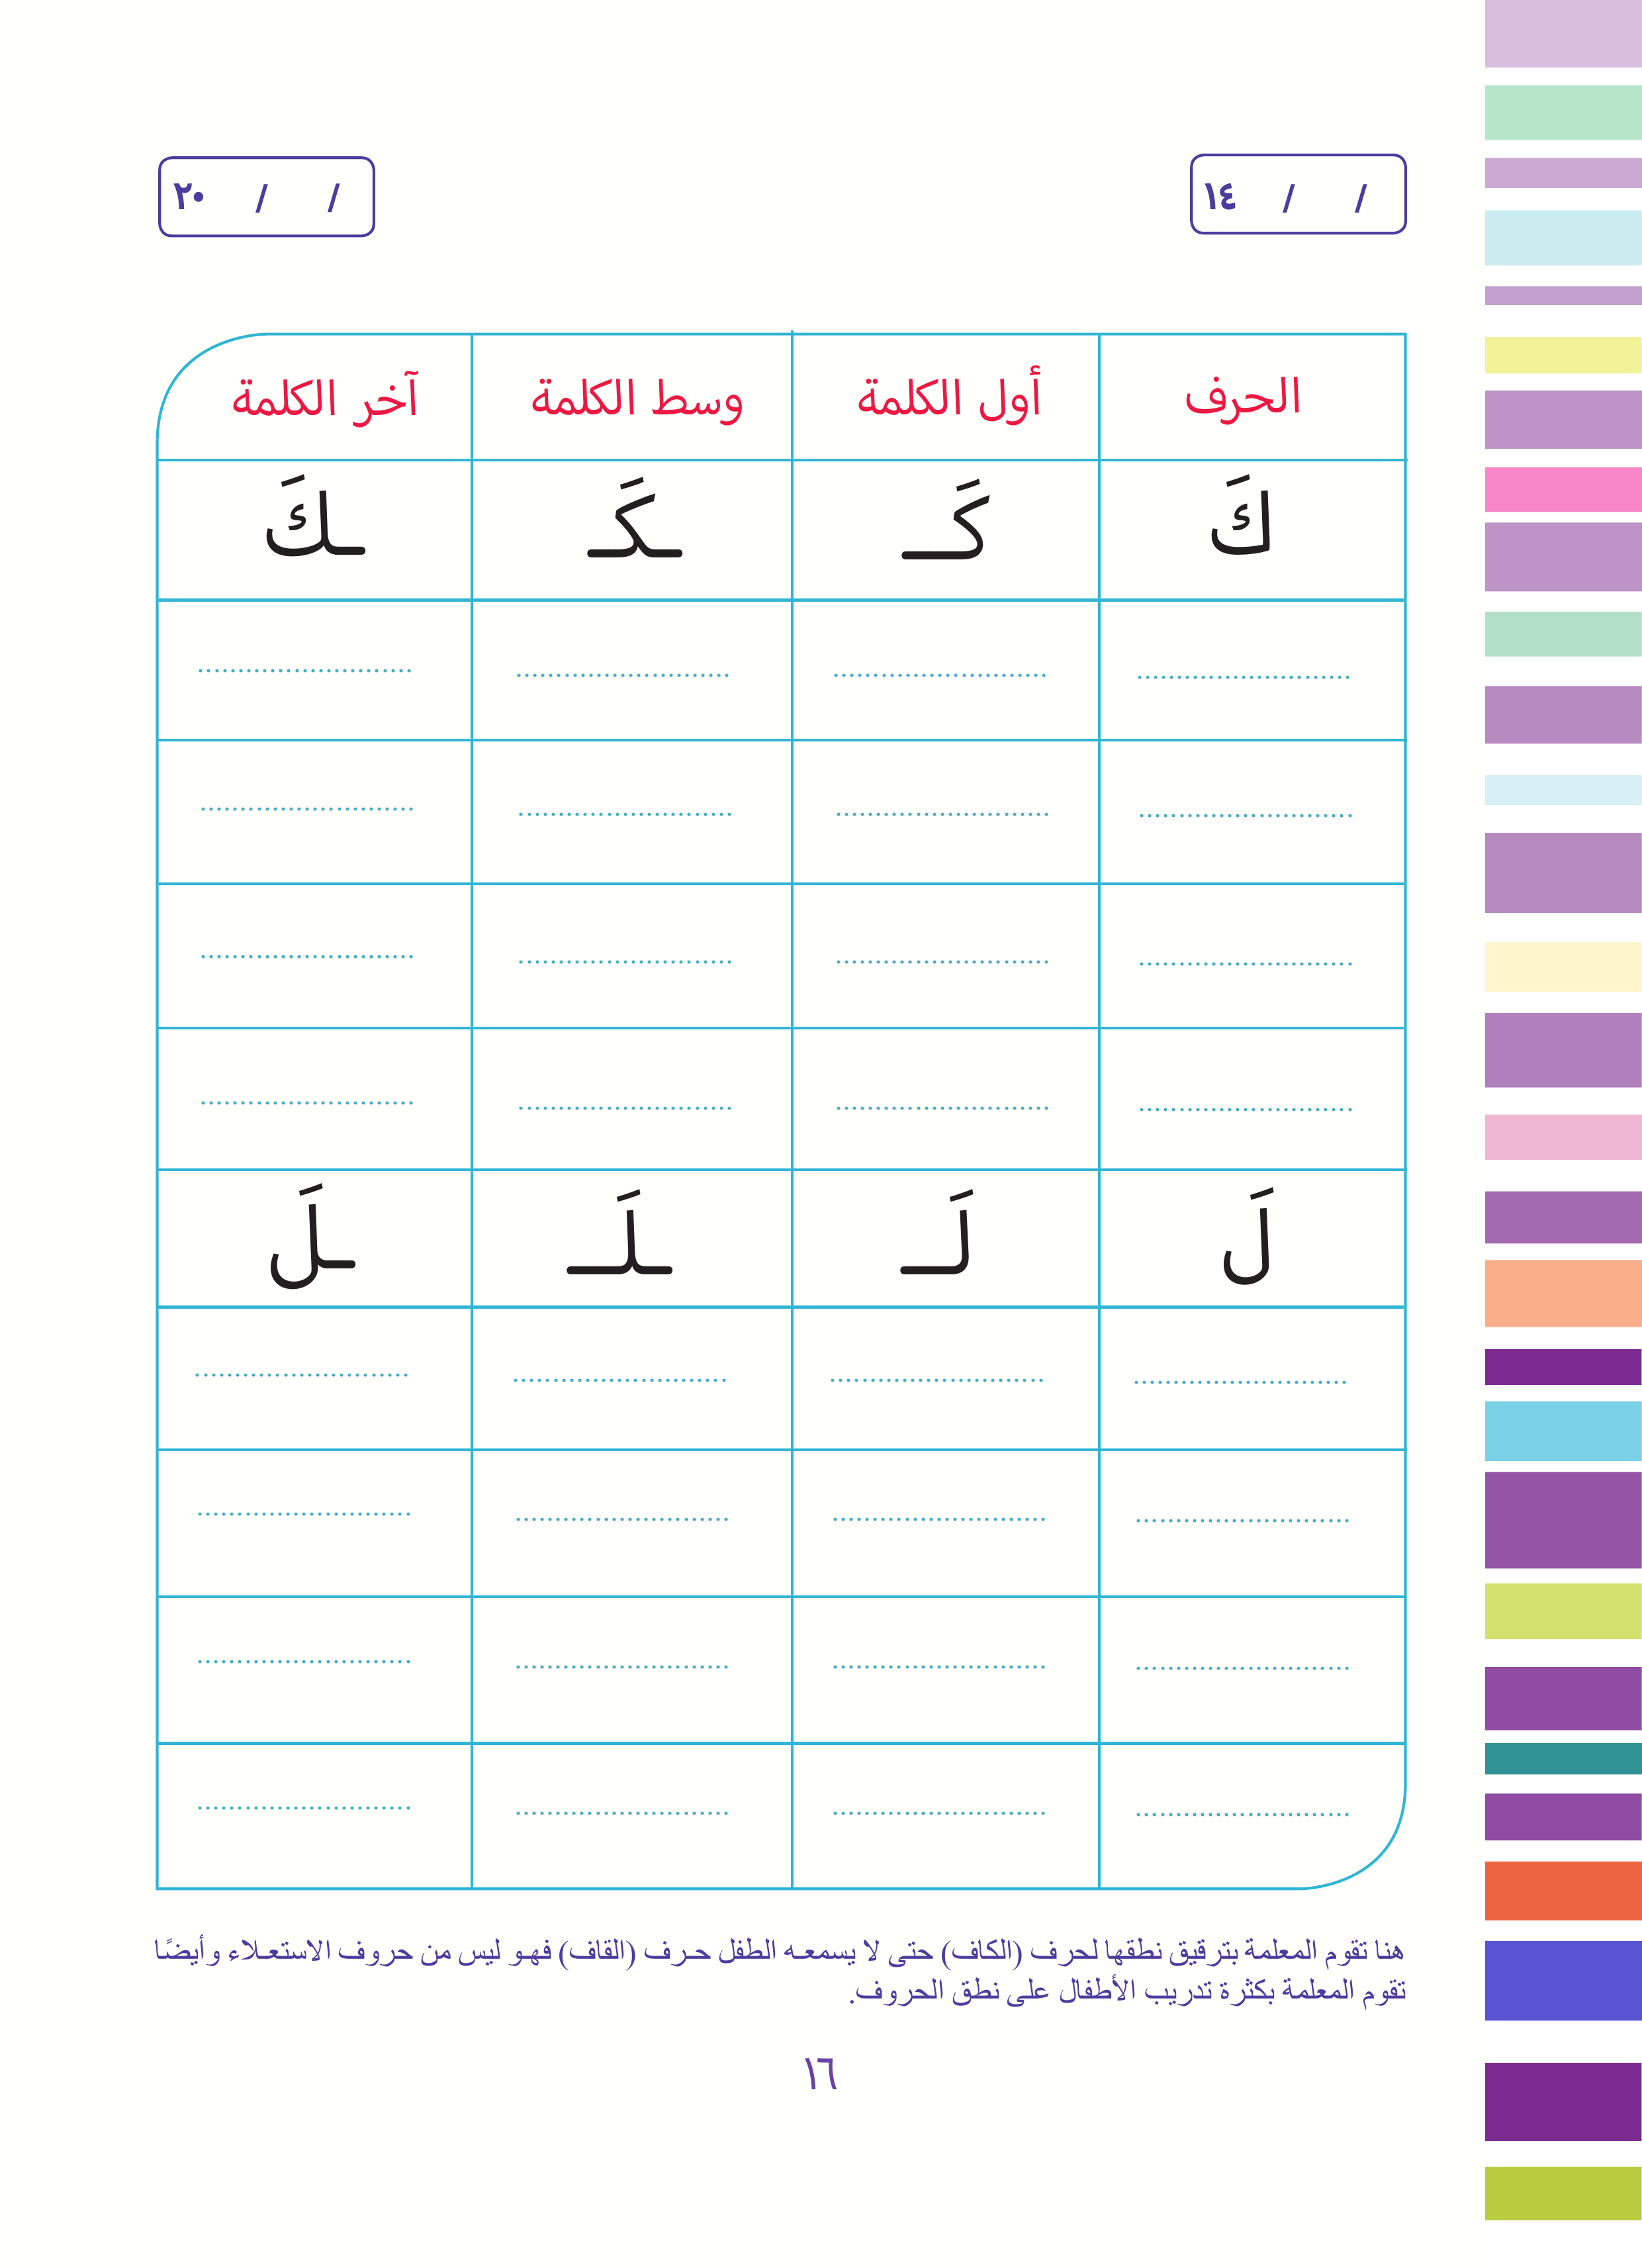 / / ١٤
/ / ٢٠
الحرف أول الكلمة وسط الكلمة آخر الكلمة
كَ كَـــ ـكَـ ـكَ
.......................... .......................... .......................... ..........................
.......................... .......................... .......................... ..........................
.......................... .......................... .......................... ..........................
.......................... .......................... .......................... ..........................
لَ لَـــ ـلَـــ ـلَ
.......................... .......................... .......................... ..........................
.......................... .......................... .......................... ..........................
.......................... .......................... .......................... ..........................
.......................... .......................... .......................... ..........................
هنا تقوم المعلمة بترقيق نطقها لحرف (الكاف) حتى لا يسمعـه الطفل حـرف (القاف) فهـو ليس من حروف الاستعـلاء وأيضًا
تقوم المعلمة بكثرة تدريب الأطفال على نطق الحروف.
١٦